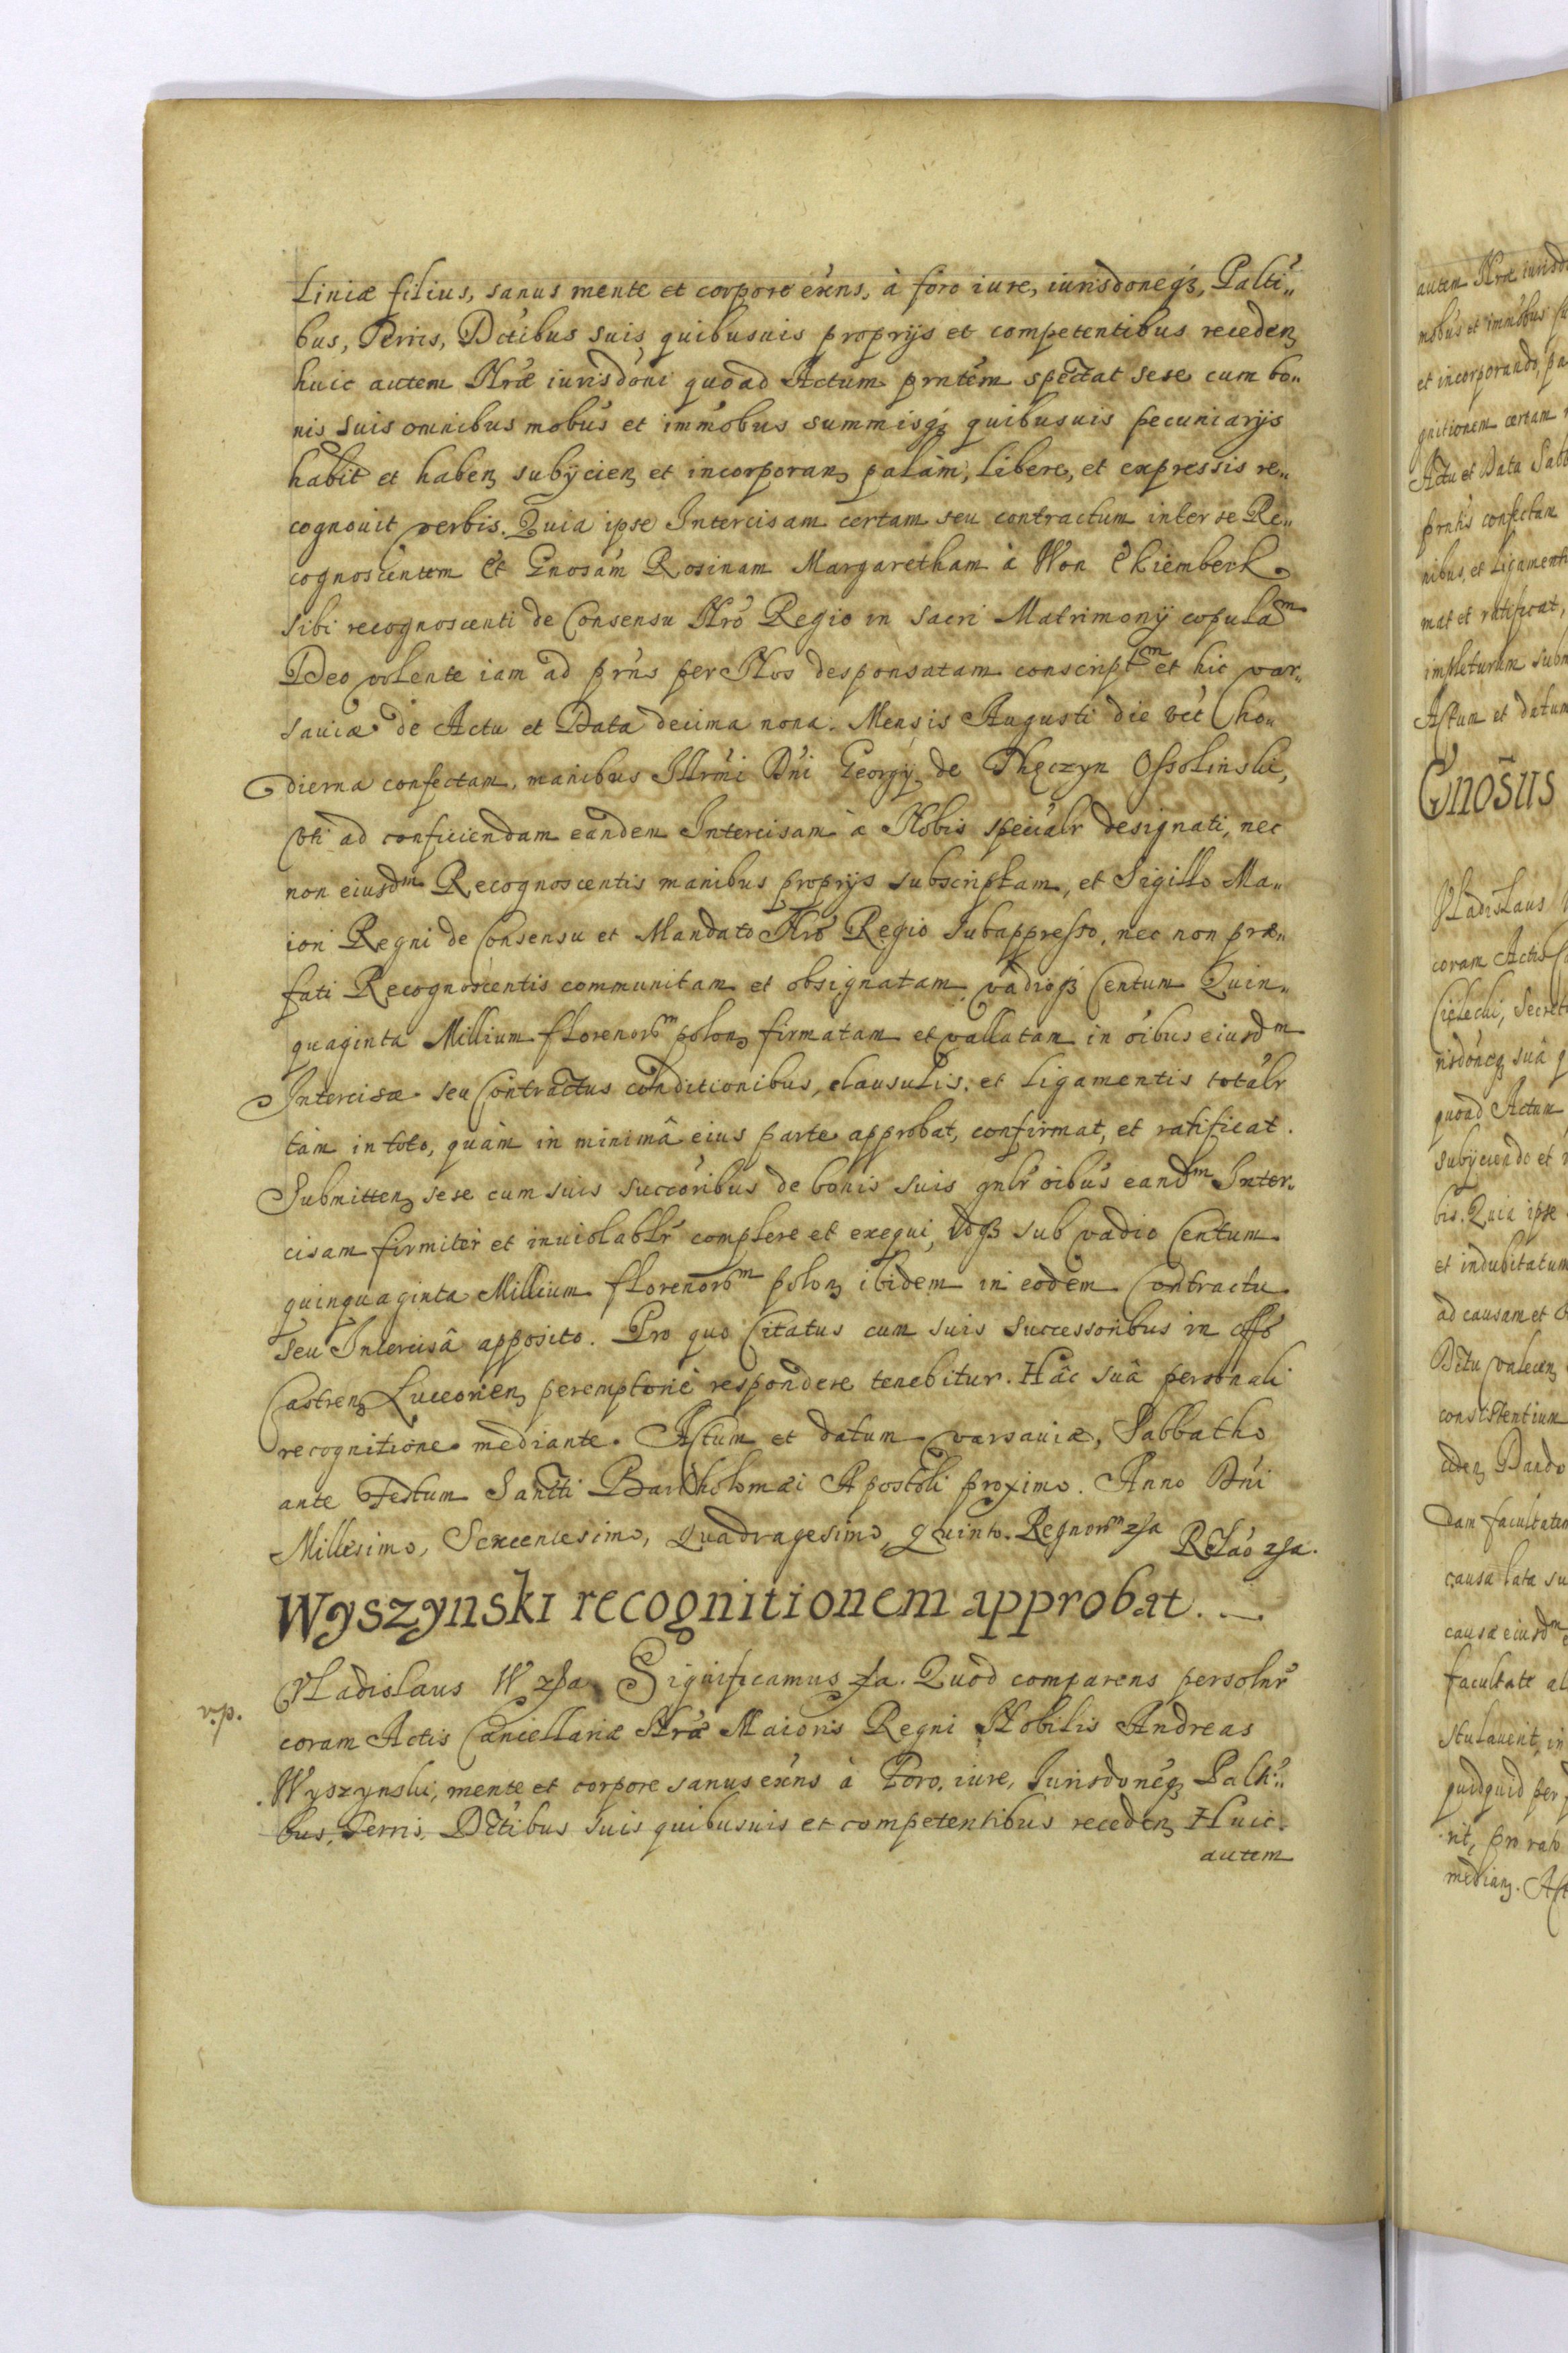 Liniæ filius, sanus mente et corpore exēns, à foro iure, iurisdoneqꝫ, Palti„
bus, Terris, Dctibus suis quibusuis proprijs et competentibus recedenꝫ
huic autem Nræ iurisdoni quoad Actum prntem spectat sese cum bo„
nis suis omnibus mobus et immobus summisqꝫ quibusuis pecuniarijs
habit et habenꝫ subijcienꝫ et incorporanꝫ palàm, libere, et expressis re„
cognouit verbis. Quia ipse Intercisam certam seu contractum inter se Re„
cognoscentem et Gnosam Rosinam Margaretham à Won Ekiemberk
sibi recognoscenti de Consensu Nro Regio in sacri Matrimonij copulam
Deo volente iam ad prns per Nos desponsatam conscriptm et hic var„
sauiæ de Actu et Data decima nona Mensis Augusti die vēt ho„
dierna confectam, manibus Illrmi Dni Georgij de Thęczyn Ossolinski,
vti ad conficiendam eandem Intercisam à Nobis specialr designati, nec
non eiusdm Recognoscentis manibus proprijs subscriptam, et Sigillo Ma„
iori Regni de Consensu et Mandato Nro Regio subappresso, nec non præ„
fati Recognoscentis communitam et obsignatam, vadioqꝫ Centum Quin„
quaginta Millium florenorm polonꝫ firmatam et vallatam in oibus eiusdm
Intercisæ seu Contractus conditionibus, clausulis, et ligamentis totalr
tàm in toto, quàm in minimâ eius parte approbat, confirmat, et ratificat.
Submittenꝫ sese cum suis succoribus de bonis suis gnlr oibus eandm Inter„
cisam firmiter et inuiolablr complere et exequi, idqꝫ sub vadio Centum
quinquaginta Millium florenorm polonꝫ ibidem in eodem Contractu
seu Intercisâ apposito. Pro quo Citatus cum suis successoribus in offo
Castrenꝫ Luceorienꝫ peremptorie respondere tenebitur. Hâc suâ personali
recognitione mediante. Actum et datum varsauiæ, Sabbatho
ante Festum Sancti Bartholomæi Apostoli proximo. Anno Dni
Millesimo, Sexcentesimo, Quadragesimo, Quinto. Regnorm zſa RLao zſa.
Wyszynski recognitionem approbat.
Vladislaus W zſa Significamus zſa. Quod comparens persolnr
coram Actis Cancellariæ Nræ Maioris Regni Nobilis Andreas
Wyszynski, mente et corpore sanus exēns à Foro, iure, Iurisdoneqꝫ Palti„
bus, Terris, Dctibus suis quibusuis et competentibus recedenꝫ Huic
autem
autem Nræ
mobus et immobus
et incorporando,
gnitionem certam
Actu et Data
prntis confectam
nibus, et Ligamenti
mat et ratificat,
impleturum
Actum et datum
Gnosus
Vladislaus
coram Actis
quoad Actum
subijciendo et
bis. Quia ipse
et indubitatum
ad causam et
consistentium
dam facultatem
causa lata su
causæ eiusdm
facultate al
stulauerit, in
quidquid per
rit, pro rato
medianꝫ. Act